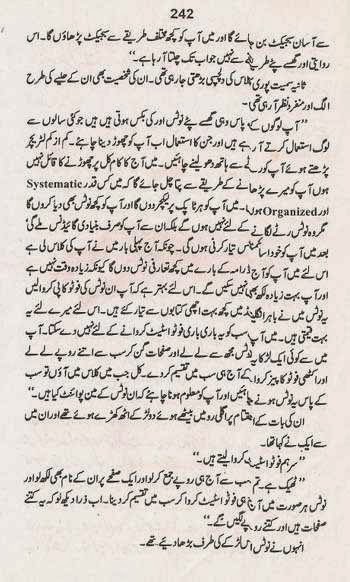 242
سے آسان سبجیکٹ بن جائے گا اور میں آپ کو کچھ مختلف طریقے سے سبجیکٹ پڑھاؤں گا۔ اس
روایتی اور گھسے پٹے طریقے سے نہیں جو اب تک چلتا آ رہا ہے۔‘‘
ثانیہ سمیت پوری کلاس کی دلچسپی بڑھتی جا رہی تھی۔ ان کی شخصیت بھی ان کے حلیے کی طرح
الگ اور منفرد نظر آ رہی تھی۔
’’آپ لوگوں کے پاس وہی گھسے پٹے نوٹس اور کی بکس ہوتی ہیں جو کئی سالوں سے
لوگ استعمال کرتے آ رہے ہیں اور جن کا استعمال اب آپ کو چھوڑ دینا چاہئے۔ کم از کم لٹریچر
پڑھتے ہوئے آپ کو رٹے سے ہاتھ دھو لینے چاہئیں۔ میں آج کا کام کل پر چھوڑنے کا قائل نہیں
ہوں آپ کو میرے پڑھانے کے طریقے سے پتا چل جائے گا کہ میں کس قدر Systematic
اور Organized ہوں۔ میں آپ کو ہر ٹاپک پر لیکچر دوں گا اور آپ کو کچھ نوٹس بھی دیا کروں گا
مگر وہ نوٹس رٹے لگانے کے لئے نہیں ہوں گے بلکہ ان سے آپ کو صرف بنیادی گائیڈنس ملے گی‘
بعد میں آپ کو خود اسائنمنٹس تیار کرنی ہوں گی۔ چونکہ آج پہلی بار میں نے آپ کی کلاس لی ہے
اس لئے میں آپ کو آج ڈرامہ کے بارے میں کچھ تعارفی نوٹس دوں گا کیونکہ زیادہ وقت نہیں ہے
اور آپ بہت زیادہ لکھ بھی نہیں سکیں گے۔ اس لئے بہتر ہے کہ آپ ان نوٹس کی فوٹو کاپی کروا لیں
یہ نوٹس میں نے باہر انگلینڈ میں کچھ بہت اچھی کتابوں سے تیار کئے ہیں۔ اس لئے میرے لئے یہ
بہت قیمتی ہیں۔ میں آپ سب کو یہ باری باری فوٹو اسٹیٹ کروانے کے لئے نہیں دے سکتا۔ آپ
میں سے کوئی ایک لڑکا یہ نوٹس مجھ سے لے لے اور صفحات گن کر سب سے اتنے روپے لے لے
اور اکٹھی فوٹو کاپیز کروا کے آج ہی سب میں تقسیم کر دے۔ کل جب میں کلاس میں آؤں تو سب
کے پاس یہ نوٹس ہونے چاہئیں اور آپ کو معلوم ہونا چاہئے کہ ان نوٹس کے مین پوائنٹ کیا ہیں۔‘‘
ان کی بات کے اختتام پر اگلی رو میں بیٹھے ہوئے دو لڑکے اٹھ کھڑے ہوئے تھے اور ان میں
سے ایک نے کہا تھا۔
’’سر ہم فوٹو اسٹیٹ کروا لیتے ہیں۔‘‘
’’ٹھیک ہے۔ تم سب سے آج ہی روپے جمع کر لو اور ایک صفحے پر ان کے نام بھی لکھ لو اور
نوٹس ہر صورت میں آج ہی فوٹو اسٹیٹ کروا کر سب میں تقسیم کر دینا۔ اب ذرا دیکھ لو کہ یہ کتنے
صفحات ہیں اور کتنے روپے لگیں گے۔‘‘
انہوں نے نوٹس اس لڑکے کی طرف بڑھا دیئے تھے۔